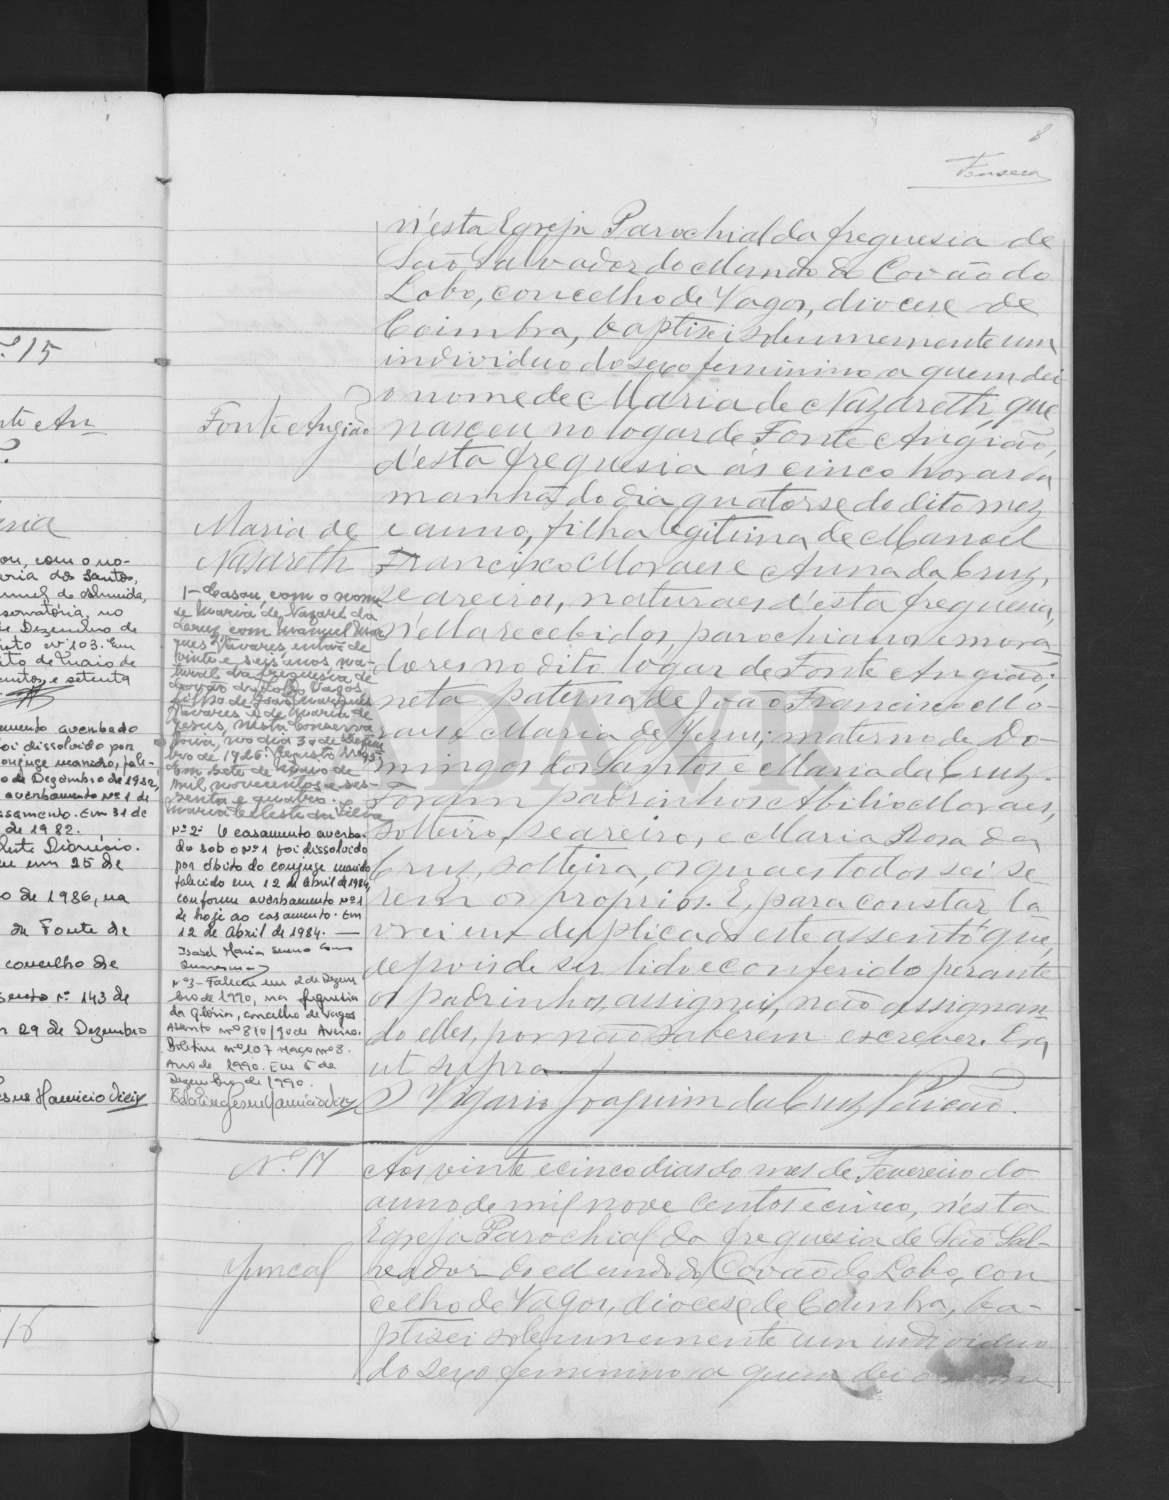 8
Fonseca
n'esta Egreja Parochial da freguesia de
São Salvador do Mundo de Covão do
Lobo, concelho de Vagos, diocese de
Coimbra, baptisei solemnemente um
individuo do sexo feminino a quem dei
o nome de Maria de Nazareth, que
nasceu no logar de Fonte Angião,
d'esta freguesia ás cinco horas da
manhã do dia quatorse do dito mez
e anno, filha legitima de Manoel
Francisco Moraes e Anna da Cruz,
seareiros, naturaes d'esta freguesia,
n'ella recebidos, parochianos e mora-
dores no dito logar de Fonte Angião;
neta paterna de João Francisco Mo-
raes e Maria de Jesus; materna de Do-
mingos dos Santos e Maria da Cruz.
Foram padrinhos Abilio Moraes,
solteiro, seareiro, e Maria Rosa da
Cruz, solteira, os quaes todos sei se-
rem os proprios. E, para constar la-
vrei em duplicado este assento que,
depois de ser lido e conferido perante
os padrinhos, assignei, não assignan-
do elles, por não saberem escrever. Era
ut supra
O Vigario Joaquim da Cruz
Fonte Angião
Maria de
Nazareth
1-Casou, com o nome
de Maria de Nazaré da
Cruz, com Manuel Mar
ques Tavares, de
vinte e seis anos, na-
tural da freguesia de
Covão do Lobo, Vagos,
filho de João Marques
Tavares e de Maria de
Jesus, nesta Conserva
tória, no dia 30 de Dezem
bro de 1926. Registo nº
Em sete de de
mil novecentos e ses-
senta e quatro.
Maria Celeste da Silva
Nº 2- O casamento averba-
do sob o Nº 1 foi dissolvido
por óbito do conjuge marido
falecido em 12 de Abril de 1984,
conforme averbamento Nº 1
de hoje ao casamento. Em
12 de Abril de 1984.
Isabel Maria
Nº 3- Faleceu em 2 de Dezem
bro de 1990, na freguesia
da Glória, concelho de
Assento nº 810/90 de Aveiro.
Boletim nº 107 Maço nº 8.
Ano de 1990. Em 5 de
Dezembro de 1990.
Nº 17
Juncal
Aos vinte e cinco dias do mes de Fevereiro do
anno de mil nove centos e cinco, n'esta
Egreja Parochial da freguesia de São Sal-
vador do Mundo de Covão do Lobo, con
celho de Vagos, diocese de Coimbra, ba-
ptisei solemnemente um individuo
do sexo feminino a quem dei o nome
º 15
nte An
ou, com o no-
aria dos Santos,
Almeida,
servatória, no
de Dezembro de
nº 103. Em
oito de Maio de
e setenta
amento averbado
foi dissolvido por
conjuge marido, fale-
o de Dezembro de 1982,
averbamento Nº 1 de
casamento. Em 31 de
de 1982.
Dionísio.
eu em 25 de
o de 1986, na
de Fonte de
concelho de
sento nº 143 de
m 29 de Dezembro
16
ADAVR